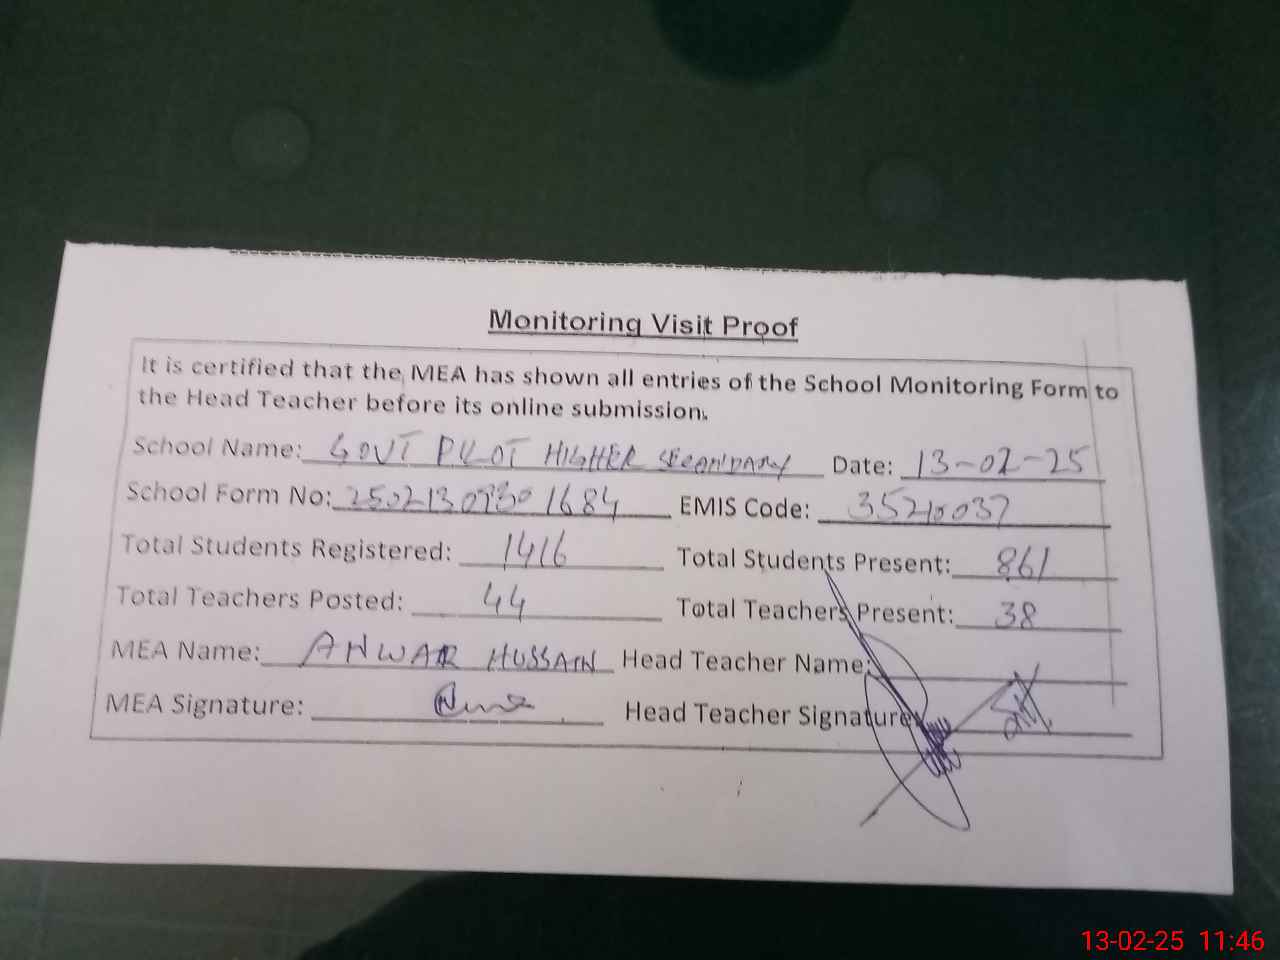 Monitoring Visit Proof
It is certified that the MEA has shown all entries of the School Monitoring Form to
the Head Teacher before its online submission.
School Name: GOVT PILOT HIGHER SECONDARY Date: 13-02-25
School Form No: EMIS Code: 35210037
Total Students Registered: 1416 Total Students Present: 861
Total Teachers Posted: 44 Total Teachers Present: 38
MEA Name: ANWAR HUSSAIN Head Teacher Name:
MEA Signature: Head Teacher Signature
13-02-25 11:46